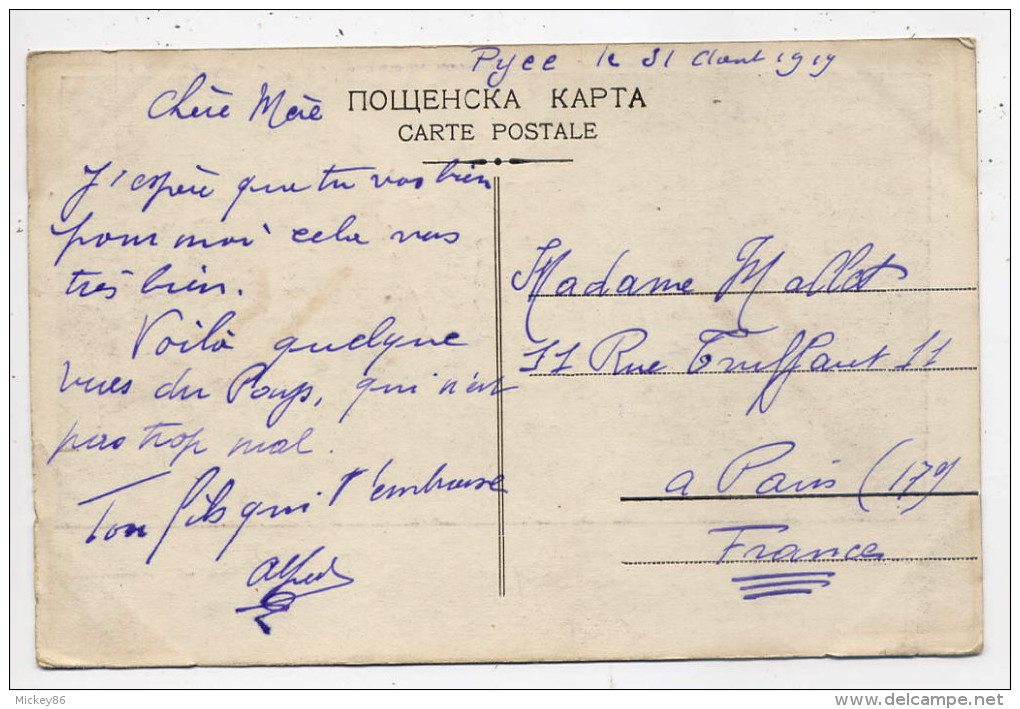 le 31 Aout 1919
Chère Mère
ПОЩЕНСКА КАРТА
CARTE POSTALE
J'espère que tu vas bien
pour moi cela vas
très bien.
Voilà quelque
vues du Pays, qui n'est
pas trop mal.
Ton fils qui t'embrasse
Alfred
Madame Mallot
11 Rue Truffaut 11
a Paris (17e)
France
Mickey86
www.delcampe.net